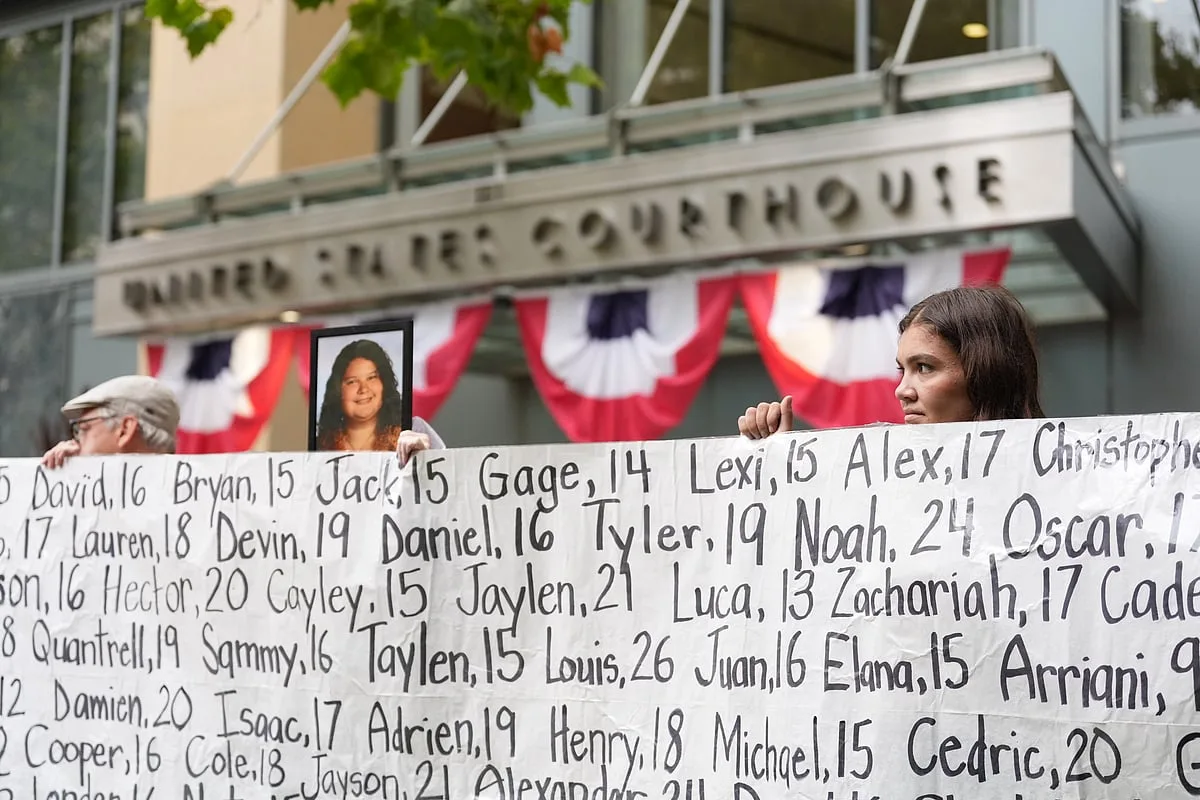 UNITED STATES COURTHOUSE
David, 16 Bryan, 15 Jack, 15 Gage, 14 Lexi, 15 Alex, 17 Christophe
17 Lauren, 18 Devin, 19 Daniel, 16 Tyler, 19 Noah, 24 Oscar,
son, 16 Hector, 20 Cayley, 15 Jaylen, 21 Luca, 13 Zachariah, 17 Cade
8 Quantrell, 19 Sammy, 16 Taylen, 15 Louis, 26 Juan, 16 Elana, 15 Arriani, 9
12 Damien, 20 Isaac, 17 Adrien, 19 Henry, 18 Michael, 15 Cedric, 20
Cooper, 16 Cole, 18 Jayson, 21 Alexander